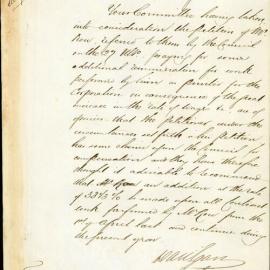 Your Committee having taken
into consideration the Petition of Mr
Row referred to them by the Council
on the 27 praying for some
additional remuneration for work
performed by him as printer for the
Corporation in consequence of the great
increase in the rate of wages is are of
opinion that the Petitioner under the
circumstances set forth in his Petition
has some claim upon the Council for
compensation and they have therefore
thought it advisable to recommend
that an addition at the rate
of 33⅓ % be made upon all Contract
work performed by Mr Row from the
1st April last and continue during
the present year